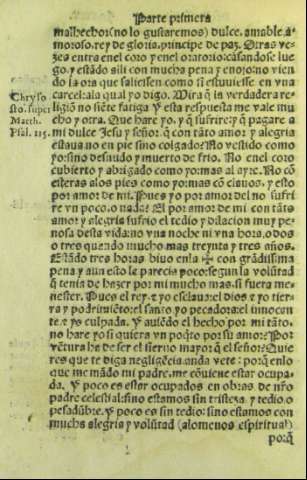 Parte primera
malhechor(no lo gustaremos) dulce, amable, a
moroso, rey de gloria, principe de paz. Otras ve
zes entra en el coro y en el oratorio: cãsandose lue
go, y estādo alli con mucha pena y enojo: no vien
do la ora que saliessen como si estuuiesse en vna
carcel: ala qual yo digo. Mira q̃ in verdadera re
ligiõ no siẽte fatiga y esta respuesta me vale mu
cho y otra. Que hare yo, y q̃ sufrire: y q̃ pagare a
mi dulce Jesu y señor: q̃ con tãto amor y alegria
estaua no en pie sino colgado: No vestido como
yo: sino desnudo y muerto de frio. No en el coro
cubierto y abrigado como yo: mas al ayre. No cõ
esteras alos pies como yo: mas cõ clauos, y esto
por amor de mi. Pues yo por amor del no sufri
re vn poco, o nada: El por amor de mi con tãto
amor y alegria sufrio el tedio y dilacion muy pe
nosa desta vida: no vna noche ni vna hora, o dos
o tres quando mucho mas treynta y tres años.
Estãdo tres horas biuo enla ✠ con grādissima
pena y aun esto le parecia poco: segun la volũtad
q̃ tenia de hazer por mi mucho mas, si fuera me
nester. Pues el rey: z yo esclaua: el dios z yo tier
ra y podrimiẽto: el sancto yo pecadora: el innocen
te: z yo culpada. Y auiẽdo el hecho por mi tãto,
no hare yo si quiera vn poq̃to por su amor: Por
vẽtura ha de ser el sieruo mayor q̃ el señor? Quie
res que te diga negligẽcia, anda vete: porq̃ enlo
que me mãdo mi padre, me cõuiene estar ocupa
da. Y poco es estar ocupados en obras de nr̃o
padre celestial: sino estamos sin tristeza, y tedio, o
pesadũbre. Y poco es sin tedio: sino estamos con
mucha alegria y volũtad (alomenos espiritual)
porq̃
Chryso
sto. super
Matth.
Psal. 115.